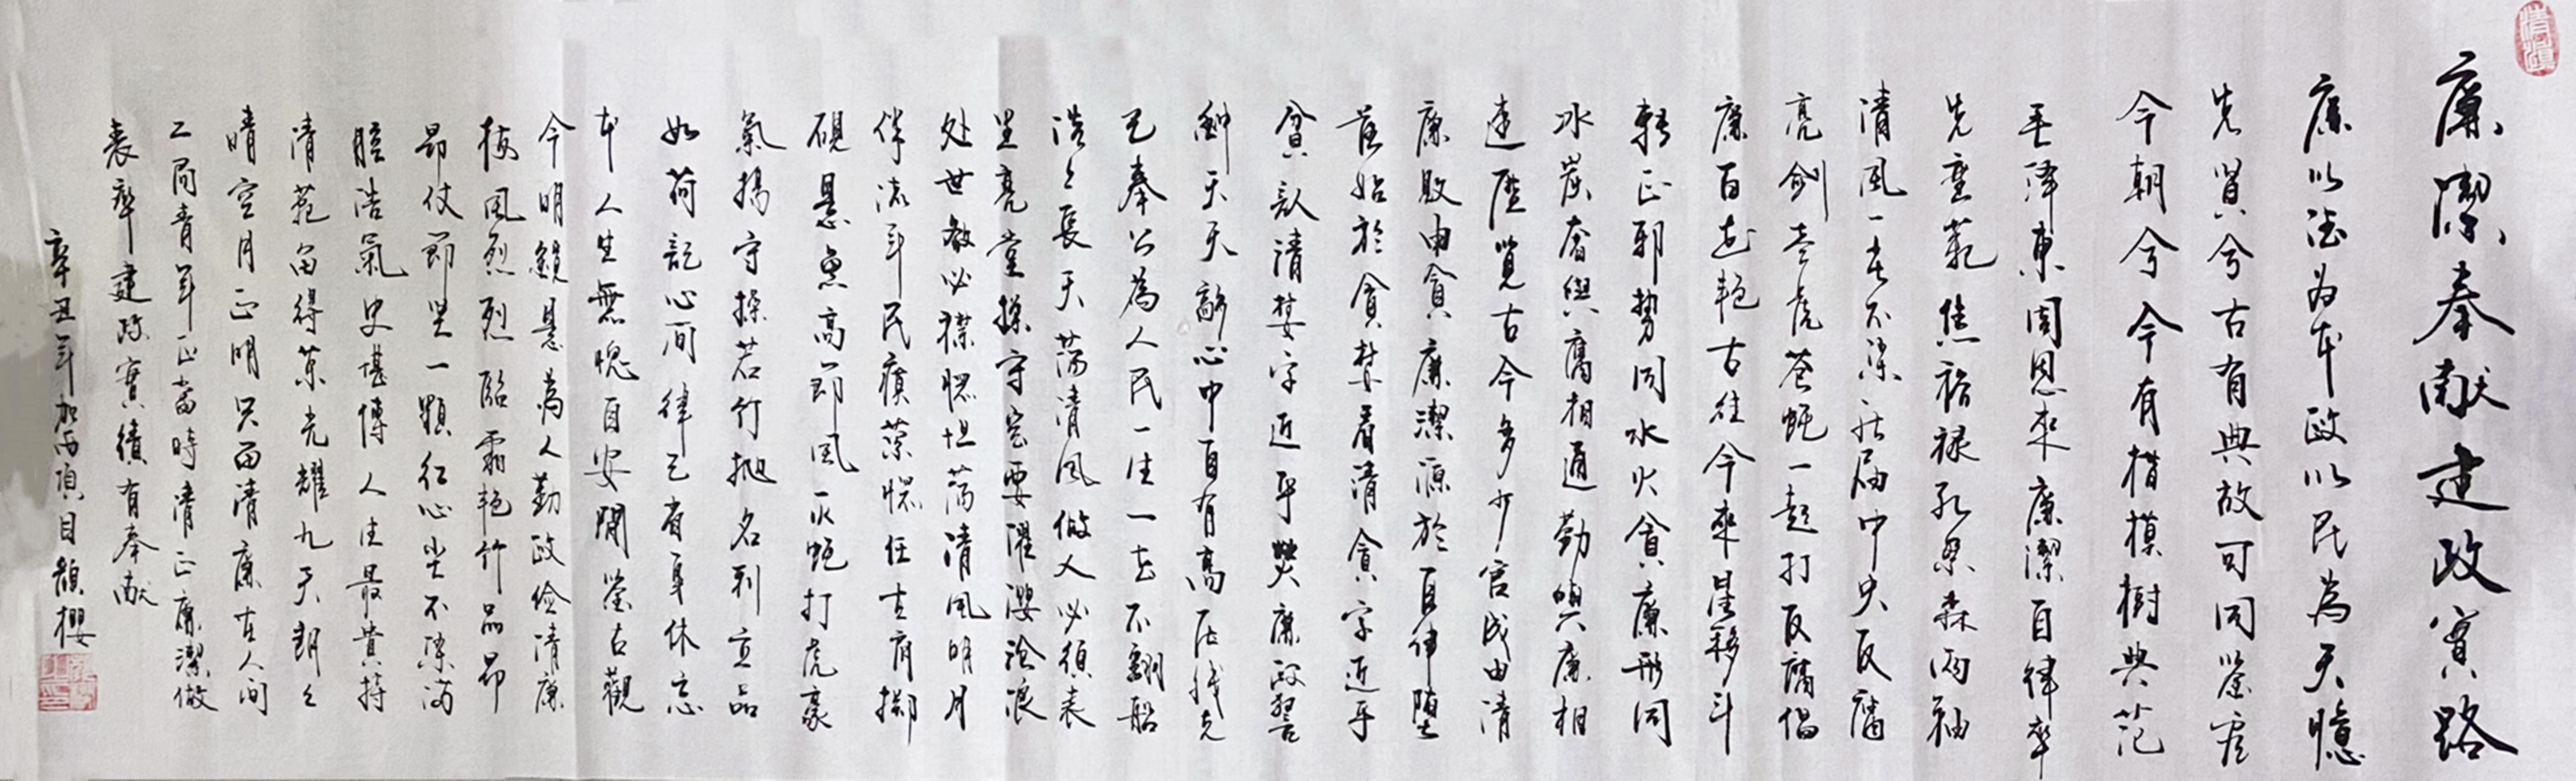 廉潔奉献建政實路
廉以法为本政以民為天憶
先賢兮古有典故可同鉴看
今朝兮今有楷模樹典范
毛泽東周恩来廉潔自律率
先垂範焦裕禄孔繁森两袖
清风一尘不染十八届中央反腐
亮劍老虎苍蝇一起打反腐倡
廉百花艳古往今来星移斗
轉正邪势同水火貪廉形同
冰炭奢與腐相通勤與廉相
连歷览古今多少官成由清
廉敗由貪廉潔源於自律堕
落始於貪婪看清貪字近乎
貧認清婪字近乎焚廉政警
鐘天天敲心中自有高压线克
己奉公為人民一生一世不翻船
浩浩長天荡清风做人必须表
里亮堂操守定要濯漫沧浪
处世敖必襟懷坦荡清風明月
伴流年民瘼萦懷任在肩擲
硯悬鱼高節風灭蝇打虎豪
氣揚守操若竹抛名利立品
如荷記心间律己省身休忘
本人生無愧自安閒鉴古觀
今明鏡悬為人勤政俭清廉
梅風烈烈臨霜艳竹品昂
昂仗節坚一顆红心尘不染满
腔浩氣史堪傳人生最貴持
清范留得荣光耀九天朗朗
晴空月正明只留清廉在人间
二局青年正當時清正廉潔做
表率建政實績有奉献
辛丑年加西項目顏櫻